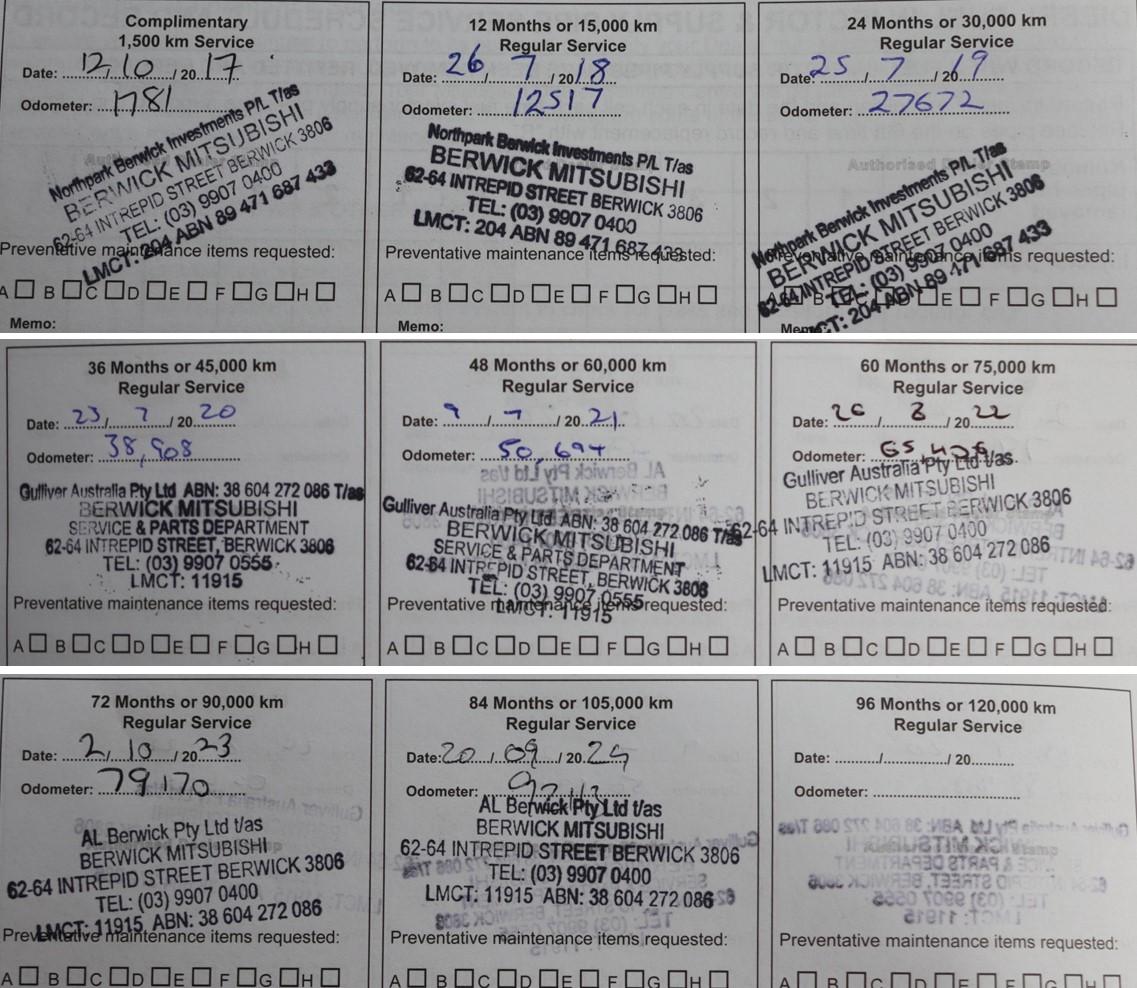 Complimentary
1,500 km Service
Date: 12/10/2017
Odometer: 1781
Northpark Berwick Investments P/L T/as
BERWICK MITSUBISHI
62-64 INTREPID STREET BERWICK 3806
TEL: (03) 9907 0400
LMCT: 204 ABN 89 471 687 433
Preventative maintenance items requested:
A B C D E F G H
Memo:
12 Months or 15,000 km
Regular Service
Date: 26/7/2018
Odometer: 12517
Northpark Berwick Investments P/L T/as
BERWICK MITSUBISHI
62-64 INTREPID STREET BERWICK 3806
TEL: (03) 9907 0400
LMCT: 204 ABN 89 471 687 433
Preventative maintenance items requested:
A B C D E F G H
Memo:
24 Months or 30,000 km
Regular Service
Date: 25/7/2019
Odometer: 27672
Northpark Berwick Investments P/L T/as
BERWICK MITSUBISHI
62-64 INTREPID STREET BERWICK 3806
TEL: (03) 9907 0400
LMCT: 204 ABN 89 471 687 433
Preventative maintenance items requested:
A B C D E F G H
Memo:
36 Months or 45,000 km
Regular Service
Date: 23/7/2020
Odometer: 38,908
Gulliver Australia Pty Ltd ABN: 38 604 272 086 T/as
BERWICK MITSUBISHI
SERVICE & PARTS DEPARTMENT
62-64 INTREPID STREET, BERWICK 3806
TEL: (03) 9907 0555
LMCT: 11915
Preventative maintenance items requested:
A B C D E F G H
48 Months or 60,000 km
Regular Service
Date: 9/7/2021
Odometer: 50,694
Gulliver Australia Pty Ltd ABN: 38 604 272 086 T/as
BERWICK MITSUBISHI
SERVICE & PARTS DEPARTMENT
62-64 INTREPID STREET, BERWICK 3806
TEL: (03) 9907 0555
LMCT: 11915
Preventative maintenance items requested:
A B C D E F G H
60 Months or 75,000 km
Regular Service
Date: 26/8/2022
Odometer:
Gulliver Australia Pty Ltd t/as
BERWICK MITSUBISHI
62-64 INTREPID STREET BERWICK 3806
TEL: (03) 9907 0400
LMCT: 11915 ABN: 38 604 272 086
Preventative maintenance items requested:
A B C D E F G H
72 Months or 90,000 km
Regular Service
Date: 2/10/2023
Odometer: 79170
AL Berwick Pty Ltd t/as
BERWICK MITSUBISHI
62-64 INTREPID STREET BERWICK 3806
TEL: (03) 9907 0400
LMCT: 11915 ABN: 38 604 272 086
Preventative maintenance items requested:
A B C D E F G H
84 Months or 105,000 km
Regular Service
Date: 20/09/20
Odometer:
AL Berwick Pty Ltd t/as
BERWICK MITSUBISHI
62-64 INTREPID STREET BERWICK 3806
TEL: (03) 9907 0400
LMCT: 11915 ABN: 38 604 272 086
Preventative maintenance items requested:
A B C D E F G H
96 Months or 120,000 km
Regular Service
Date: ......../............/ 20.........
Odometer:
Preventative maintenance items requested:
A B C D E F G H